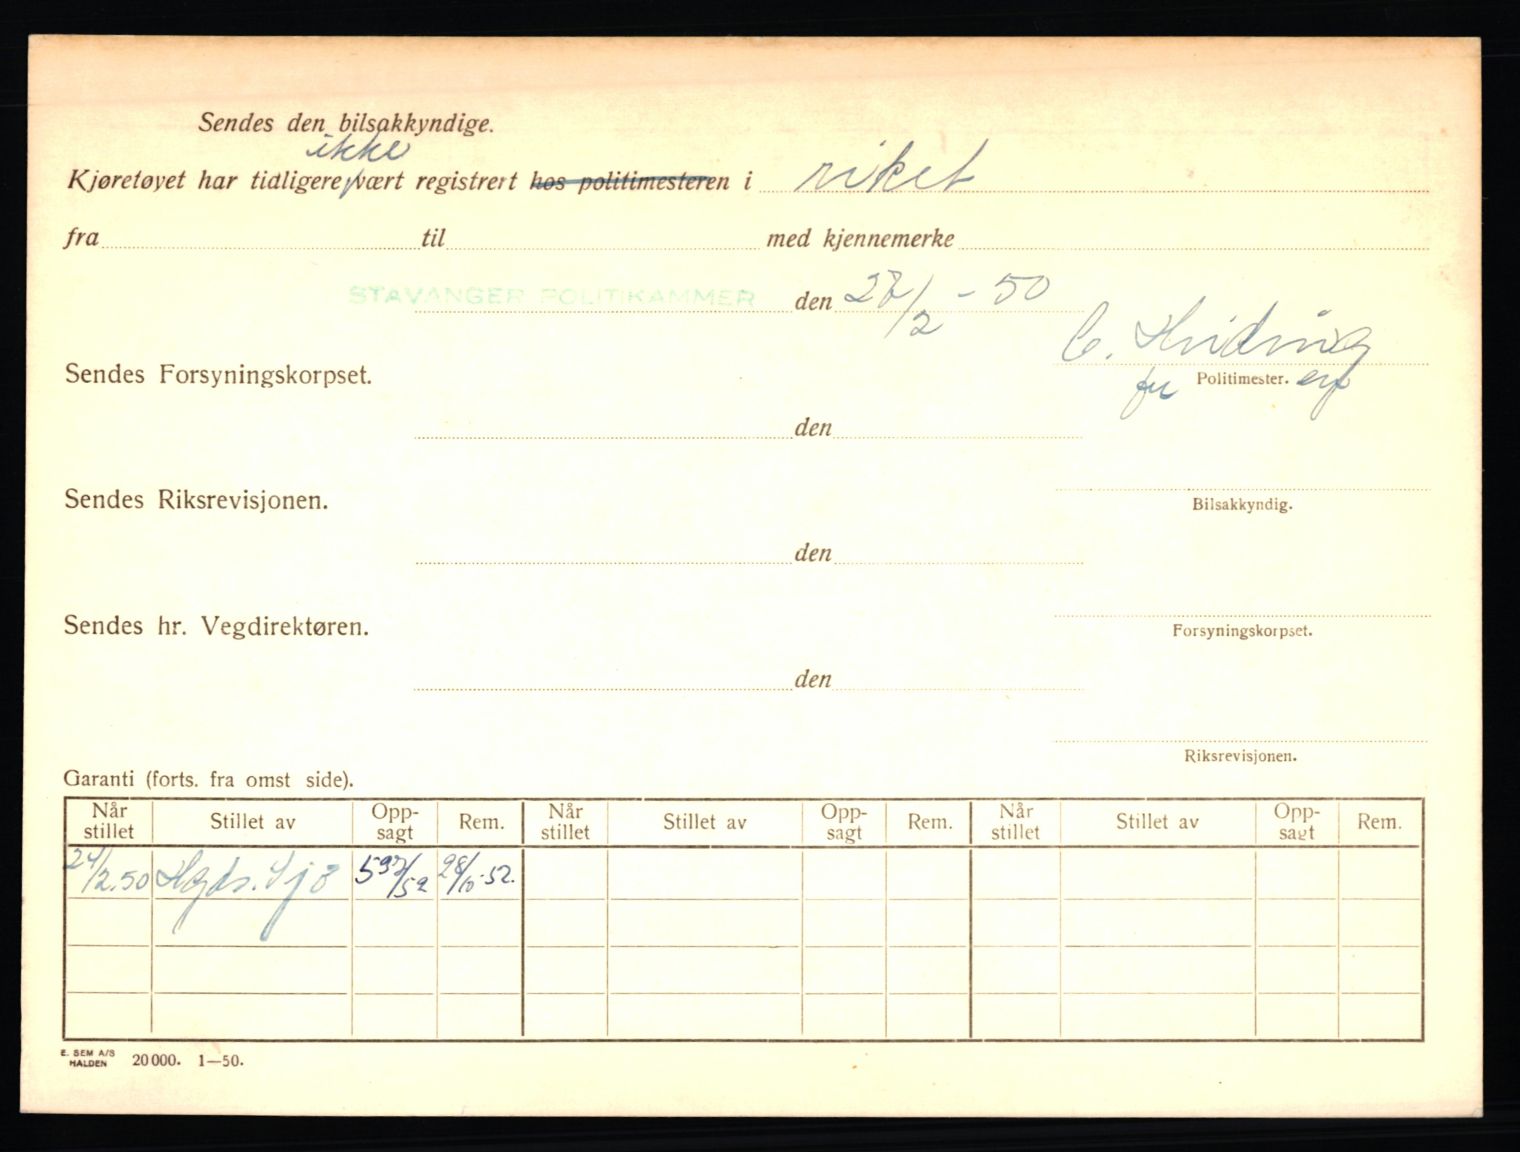 Sendes den bilsakkyndige.
ikke
Kjøretøyet har tidligere vært registrert hos politimesteren i riket
fra til med kjennemerke
STAVANGER POLITIKAMMER den 27/2 - 50
C. Hviding
Sendes Forsyningskorpset.
fu Politimester.
den
Sendes Riksrevisjonen.
Bilsakkyndig.
den
Sendes hr. Vegdirektøren.
Forsyningskorpset.
den
Riksrevisjonen.
Garanti (forts. fra omst side).
Når stillet Stillet av Opp-sagt Rem. Når stillet Stillet av Opp-sagt Rem. Når stillet Stillet av Opp-sagt Rem.
24/2.50 Hgds. Sjø 28/10-52.
E. SEM A/S
HALDEN 20000. 1—50.